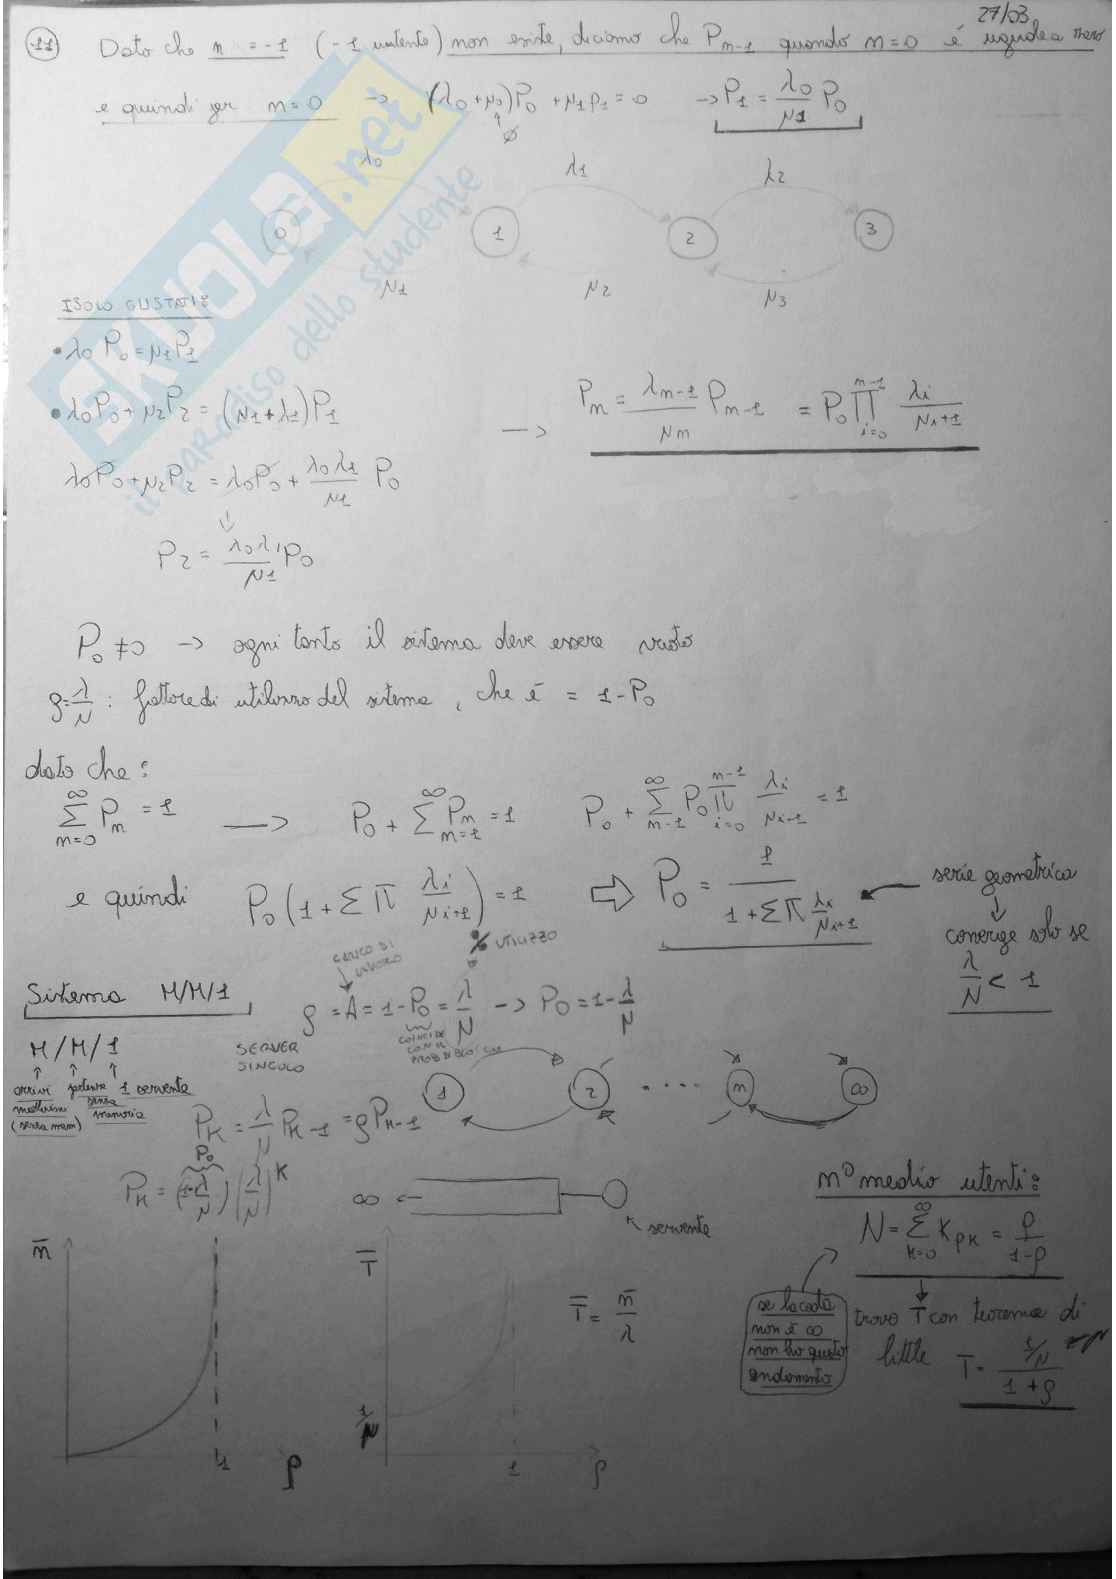 27/03
11 Dato che n = -1 (-1 utente) non esiste, diciamo che P_{n-1} quando n=0 é uguale a zero
e quindi per n=0 → (λ0+μ0)P0 + μ1P1=0 → P1 = λ0/μ1 P0
∅
λ0 λ1 λ2
0 1 2 3
μ1 μ2 μ3
ISOLO GLI STATI:
• λ0 P0 = μ1P1
• λ0P0 + μ2P2 = (μ1+λ1)P1
λ0P0+μ2P2 = λ0P0 + λ0λ1/μ1 P0
P2 = λ0λ1/μ1 P0
→ Pn = λ_{n-1}/μn P_{n-1} = P0 ∏_{i=0}^{n-1} λi/μ_{i+1}
P0 ≠0 → ogni tanto il sistema deve essere vuoto
ρ=λ/μ : fattore di utilizzo del sistema, che é = 1-P0
dato che:
∑_{n=0}^{∞} Pn = 1 → P0 + ∑_{n=1}^{∞} Pn = 1 P0 + ∑_{n=1}^{∞} P0 ∏_{i=0}^{n-1} λi/μ_{i-1} = 1
e quindi P0 (1 + ∑ ∏ λi/μ_{i+1}) = 1 ⇒ P0 = 1/(1+∑∏ λi/μ_{i+1})
serie geometrica
↓
converge solo se
λ/μ < 1
CARICO DI LAVORO
% UTILIZZO
Sistema M/M/1
ρ = A = 1-P0 = λ/μ → P0 = 1-λ/μ
COINCIDE CON
M / M / 1
arrivi
(senza mem)
partenze senza memoria
1 servente
SERVER SINGOLO
1 2 .... n ∞
PK = λ/μ P_{K-1} = ρP_{K-1}
P0
PK = (1-λ/μ) (λ/μ)^K
∞ ←
servente
n° medio utenti:
N = ∑_{K=0}^{∞} K PK = ρ/(1-ρ)
se la coda
non é ∞
non ho questo
andamento
trovo T con teorema di
little T = (1/μ)/(1+ρ)
n̄
1
ρ
T̄
1/μ
1
ρ
T̄ = n̄/λ
SKUOLA.net
il paradiso dello studente